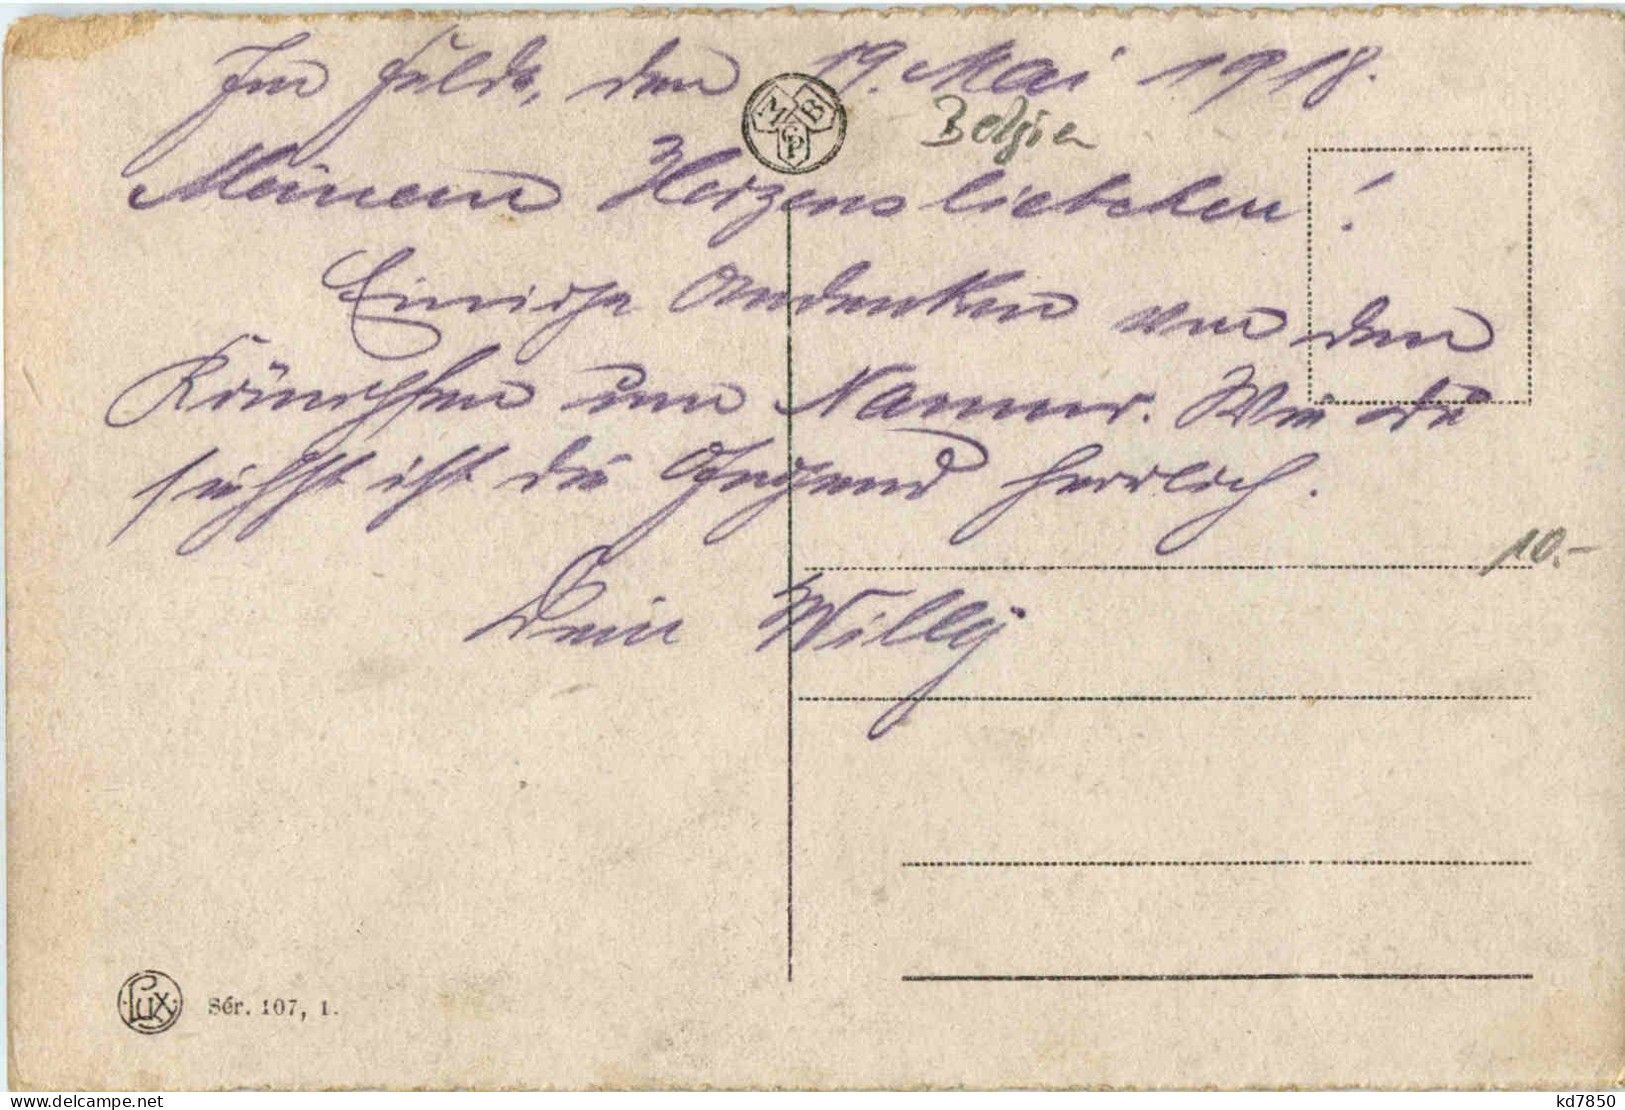 Im Felde, den 19. Mai 1918.
M B
C
P
Belgien
Meinem Herzensliebchen!
Einige Andenken von den
Kämpfen um Namur. Wie du
siehst ist die Gegend herrlich.
10.-
Dein Willy
Lux Sér. 107, 1.
delcampe.net
kd7850